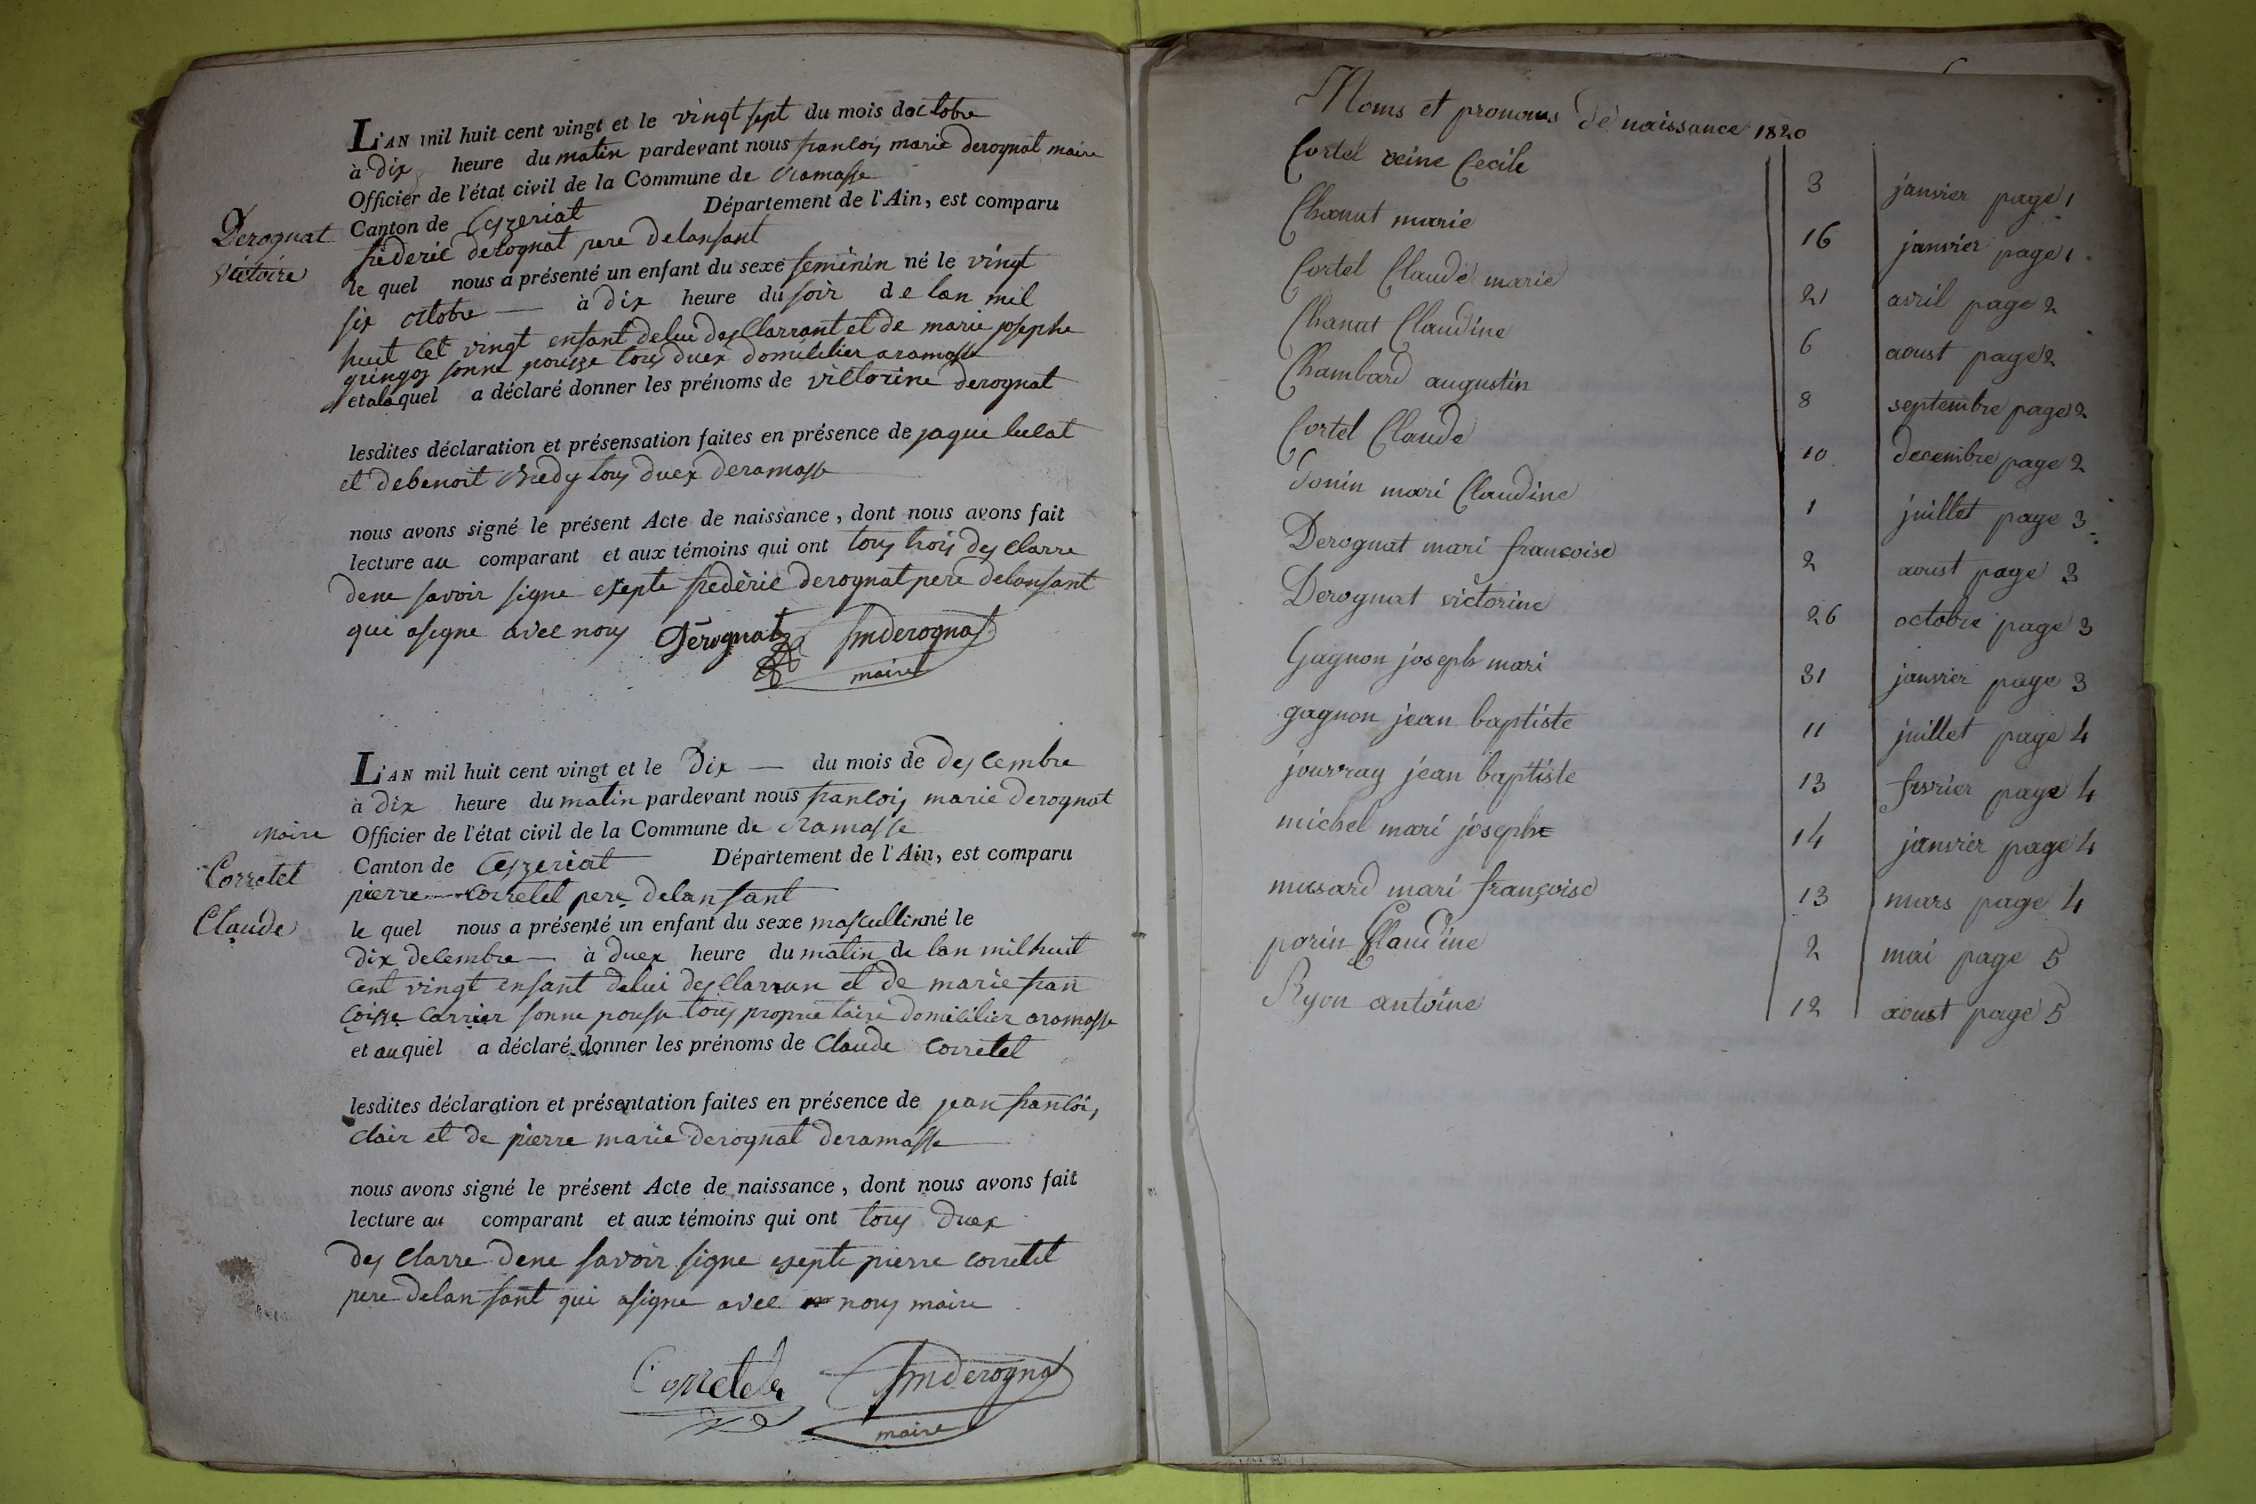 L'AN mil huit cent vingt et le vingt sept du mois doctobre
à dix heure du matin pardevant nous francois marie derognat maire
Officier de l'état civil de la Commune de ramasse
Canton de Ceyzeriat Département de l'Ain, est comparu
Derognat
victoire
frederic derognat pere delanfant
le quel nous a présenté un enfant du sexe feminin né le vingt
six octobre — à dix heure du soir de lan mil
huit cet vingt enfant delui desClarrant et de marie josephe
gringoz sonne pousze tous duex domicilier aramasse
et alaquel a déclaré donner les prénoms de victorine derognat
lesdites déclaration et présensation faites en présence de jaque
et debenoit tous duex deramasse
nous avons signé le présent Acte de naissance, dont nous avons fait
lecture au comparant et aux témoins qui ont tous trois des clarre
dene savoir signe exepte frederic derognat pere delanfant
qui asigne avec nous Dérognat fmderognat
maire
L'AN mil huit cent vingt et le Dix — du mois de des cembre
à dix heure du matin pardevant nous francois marie derognat
maire Officier de l'état civil de la Commune de ramasse
Canton de Ceyzeriat Département de l'Ain, est comparu
Corretel
Claude
pierre corretel pere delanfant
le quel nous a présenté un enfant du sexe mascullin né le
dix decembre — à duex heure du matin de lan mil huit
cent vingt enfant delui des Clarran et de marie fran
coisse carrier sonne pouse tous proprietaire domicilier aramasse
et au quel a déclaré donner les prénoms de Claude corretel
lesdites déclaration et présentation faites en présence de jean francois
clair et de pierre marie derognat deramasse
nous avons signé le présent Acte de naissance, dont nous avons fait
lecture au comparant et aux témoins qui ont tous duex
des clarre dene savoir signe exepte pierre corretel
pere delanfant qui asigne avec nous maire
Corretel fmderognat
maire
Noms et pronoms de naissance 1820
Cortel reine Cecile 3 janvier page 1
Chanut marie 16 janvier page 1
Cortel Claude marie 21 avril page 2
Chanut Claudine 6 aoust page 2
Chambard augustin 8 septembre page 2
Cortel Claude 10 decembre page 2
Donin mari Claudine 1 juillet page 3
Derognat mari francoise 2 aoust page 3
Derognat victorine 26 octobre page 3
Gagnon joseph mari 31 janvier page 3
gagnon jean baptiste 11 juillet page 4
jouvray jean baptiste 13 fevrier page 4
michel mari josephe 14 janvier page 4
musard mari françoise 13 mars page 4
porin Claudine 2 mai page 5
Ryon antoine 12 aoust page 5